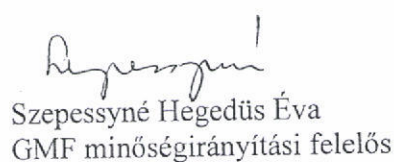 Szepessyné
Szepessyné Hegedüs Éva
GMF minőségirányítási felelős